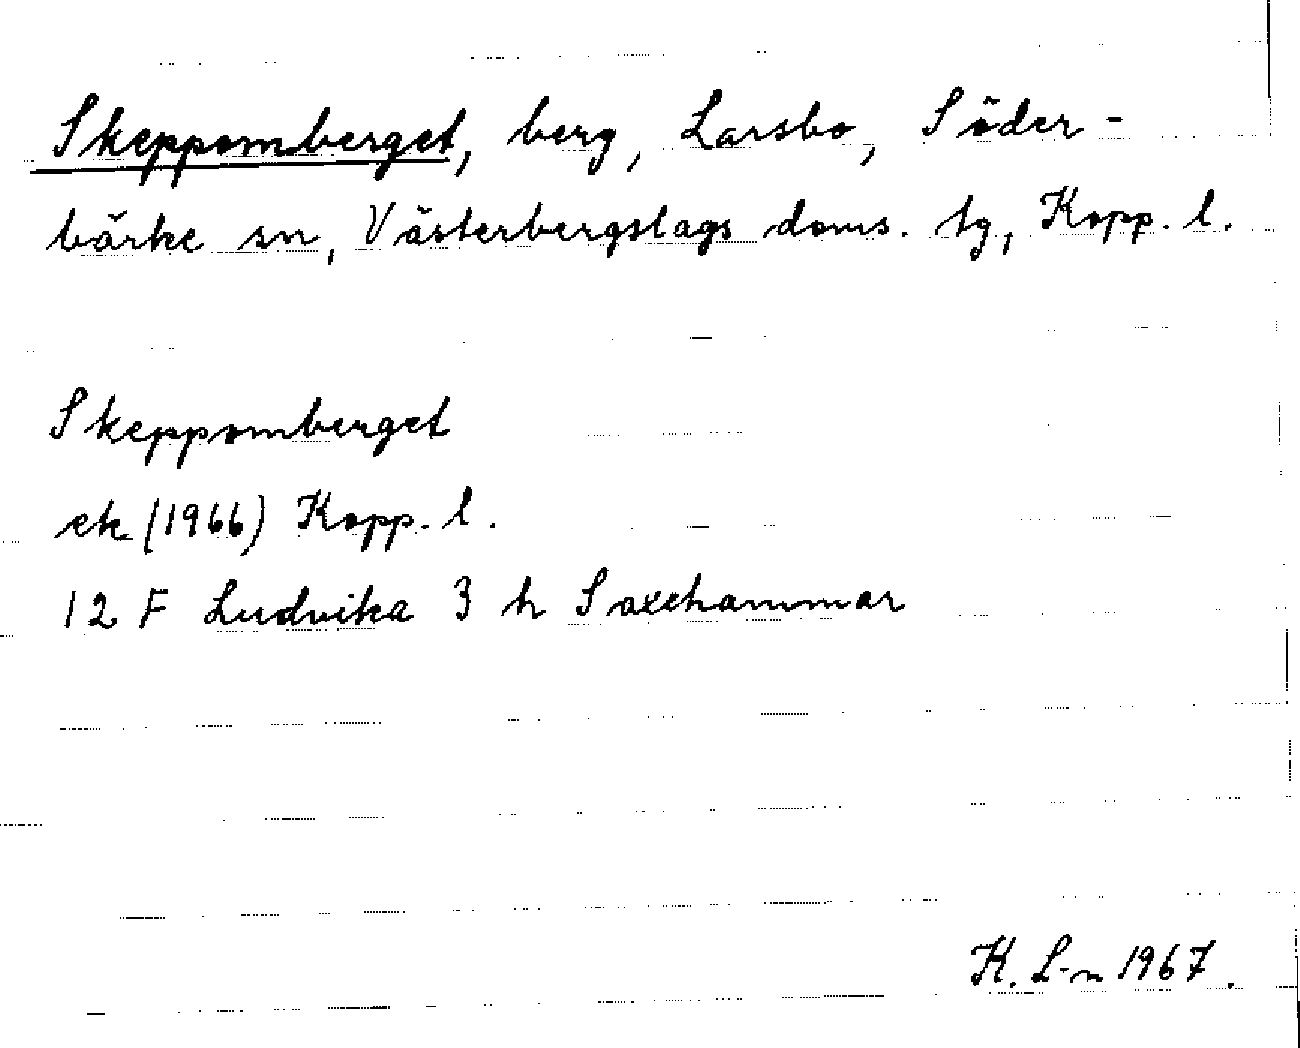 Skeppomberget, berg, Larsbo, Söder-
bärke sn, Västerbergslags doms. tg, Kopp. l.
Skeppomberget
ek (1966) Kopp. l.
12 F Ludvika 3 h Saxehammar
K. L-n 1967.